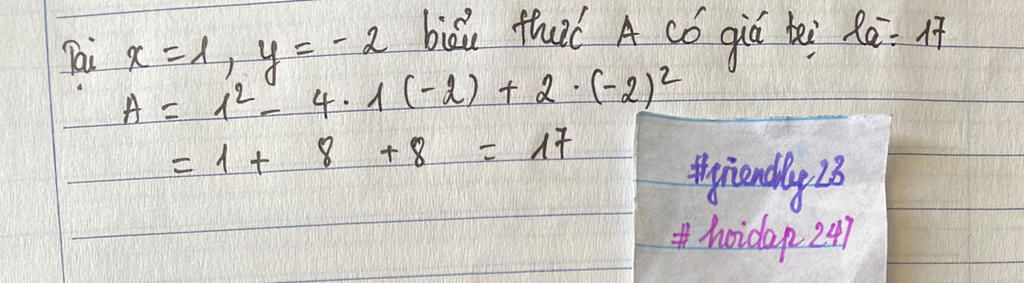 Tại x = 1, y = -2 biểu thức A có giá trị là: 17
A = 1² - 4 . 1 (-2) + 2 . (-2)²
= 1 + 8 + 8 = 17
#friendly23
# hoidap 247